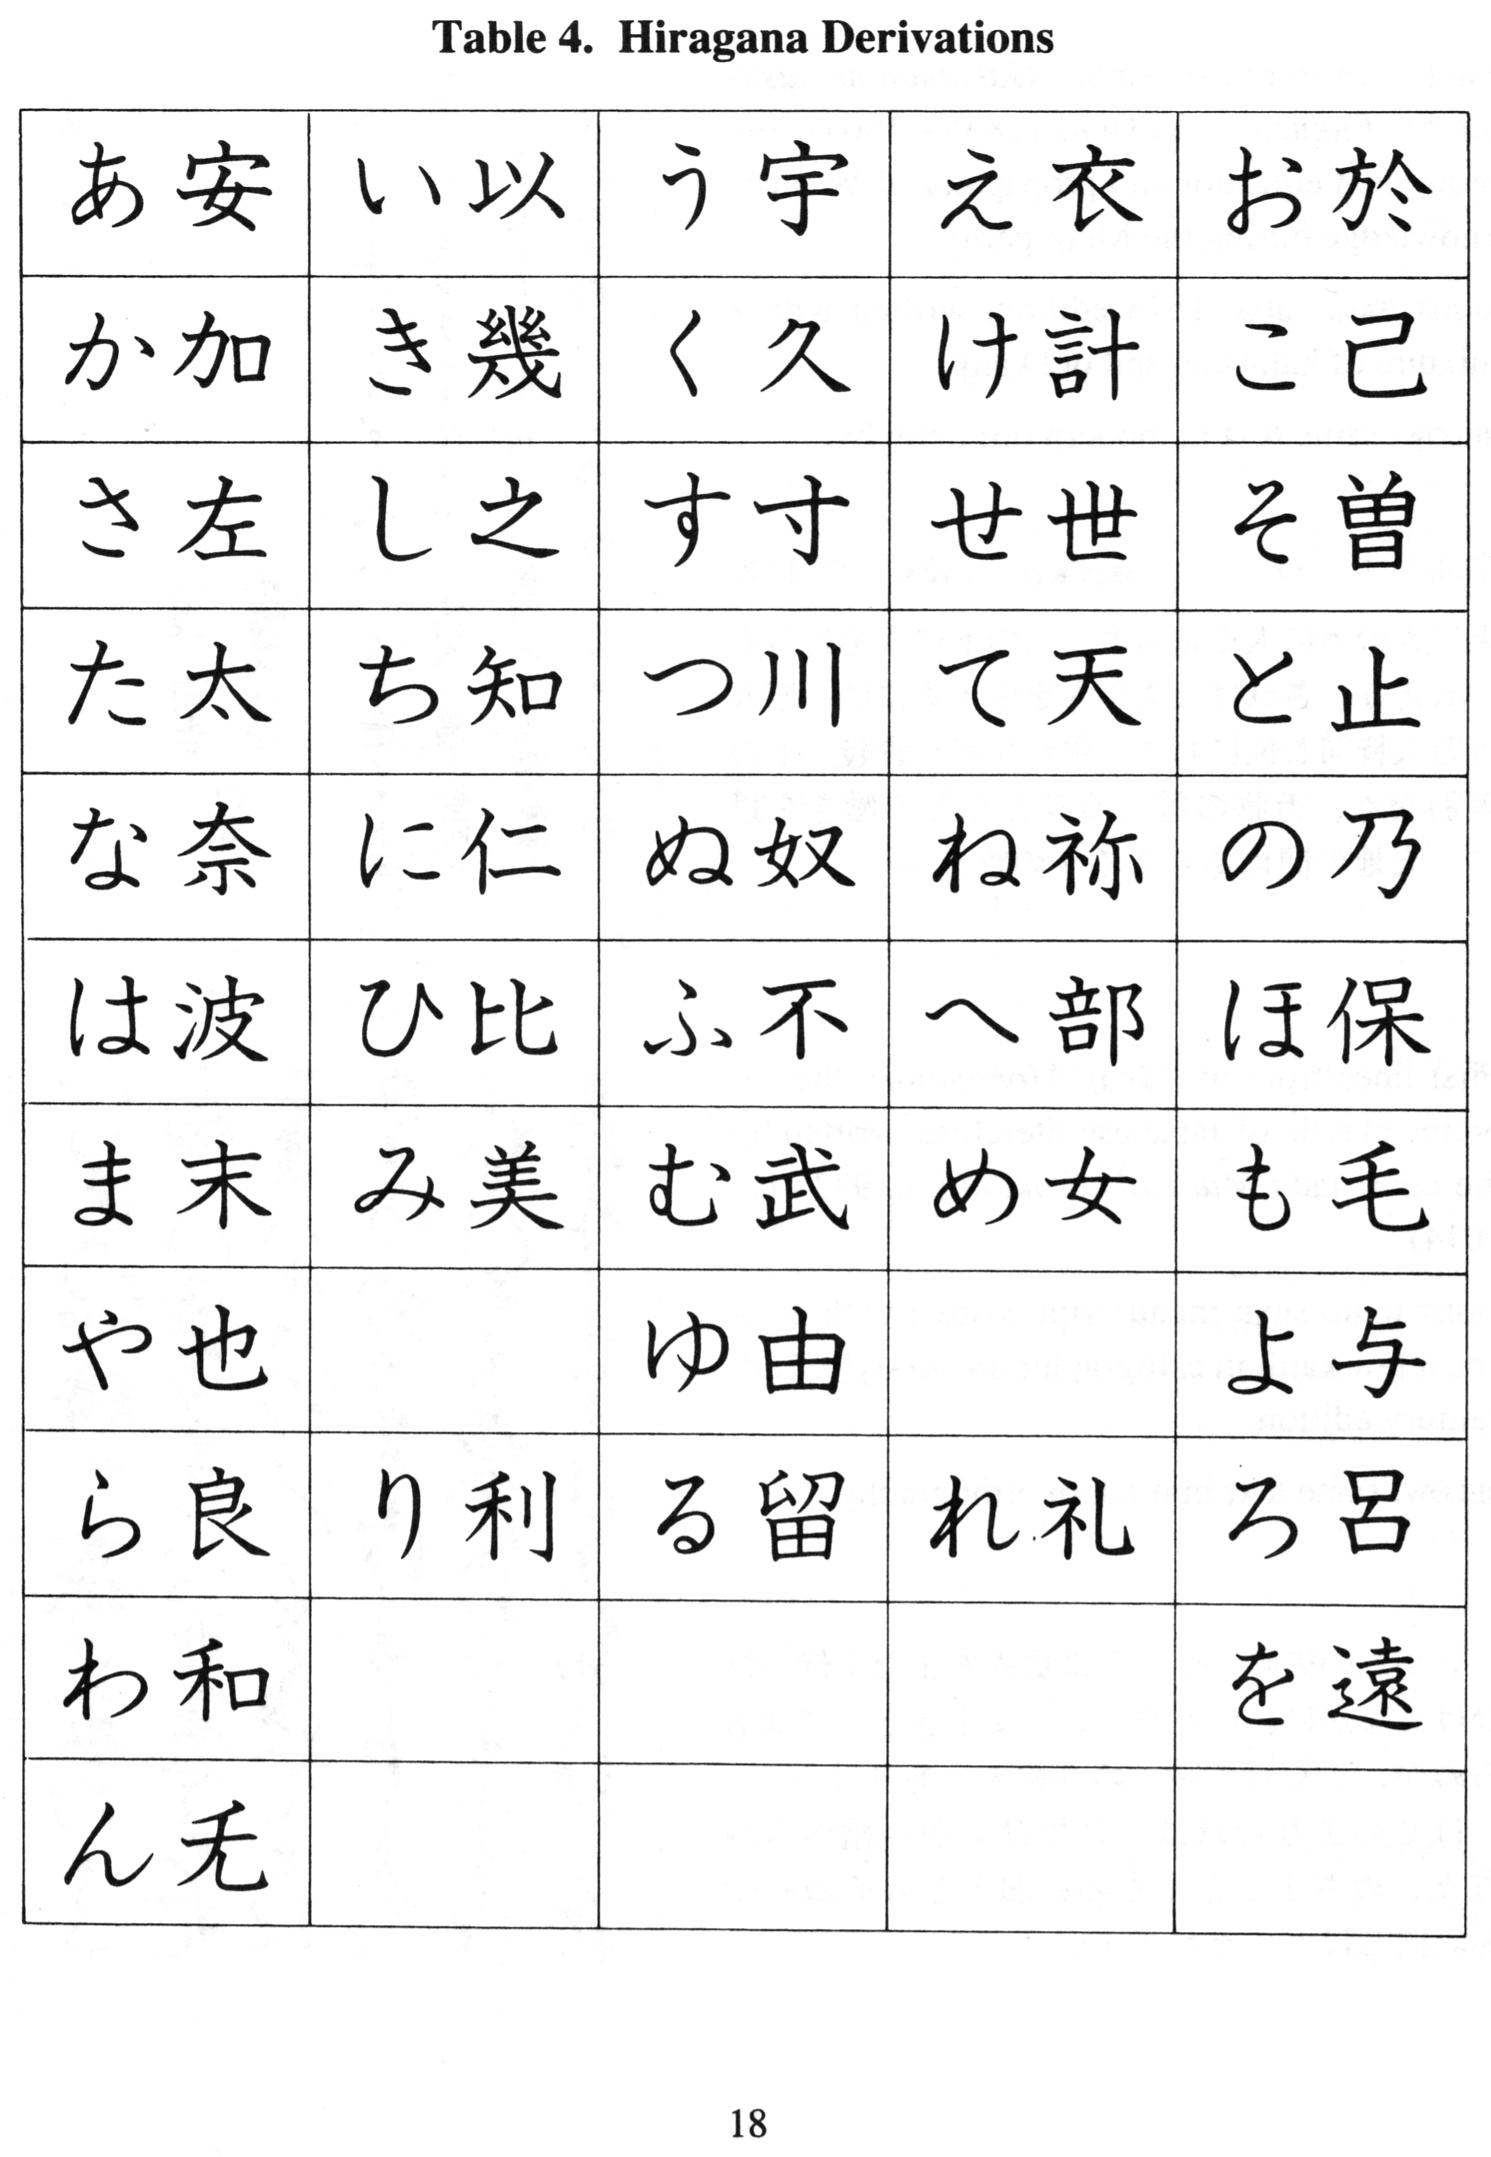 Table 4. Hiragana Derivations
あ安 い以 う宇 え衣 お於
か加 き幾 く久 け計 こ己
さ左 し之 す寸 せ世 そ曽
た太 ち知 つ川 て天 と止
な奈 に仁 ぬ奴 ね祢 の乃
は波 ひ比 ふ不 へ部 ほ保
ま末 み美 む武 め女 も毛
や也 ゆ由 よ与
ら良 り利 る留 れ礼 ろ呂
わ和 を遠
ん旡
18